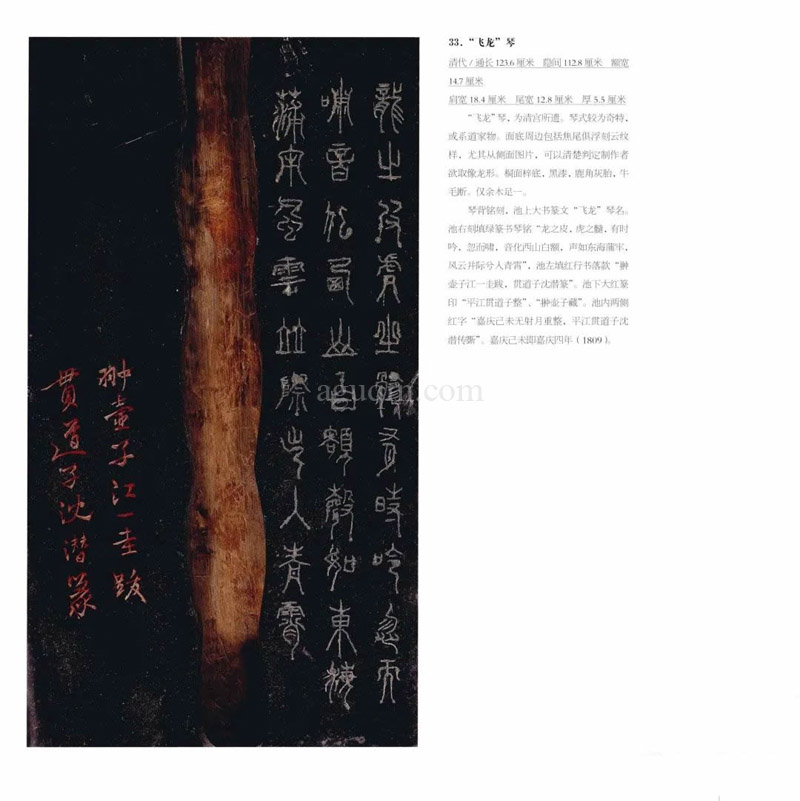 龍之皮虎之髓有時吟忽而
嘯音化西山白額聲如東海
蒲牢風雲並際兮入青霄
翀壺子江一圭跋
貫道子沈潛篆
aguqin.com
33．“飞龙”琴
清代 / 通长 123.6 厘米　隐间 112.8 厘米　额宽
14.7 厘米
肩宽 18.4 厘米　尾宽 12.8 厘米　厚 5.5 厘米
“飞龙”琴，为清宫所遗。琴式较为奇特，
或系道家物。面底周边包括焦尾俱浮刻云纹
样，尤其从侧面图片，可以清楚判定制作者
欲取像龙形。桐面梓底，黑漆，鹿角灰胎，牛
毛断。仅余木足一。
琴背铭刻，池上大书篆文“飞龙”琴名。
池右刻填绿篆书琴铭“龙之皮，虎之髓，有时
吟，忽而啸，音化西山白额，声如东海蒲牢，
风云并际兮入青霄”，池左填红行书落款“翀
壶子江一圭跋，贯道子沈潜篆”。池下大红篆
印“平江贯道子整”、“翀壶子藏”。池内两侧
红字“嘉庆己未无射月重整，平江贯道子沈
潜传斲”。嘉庆己未即嘉庆四年（1809）。